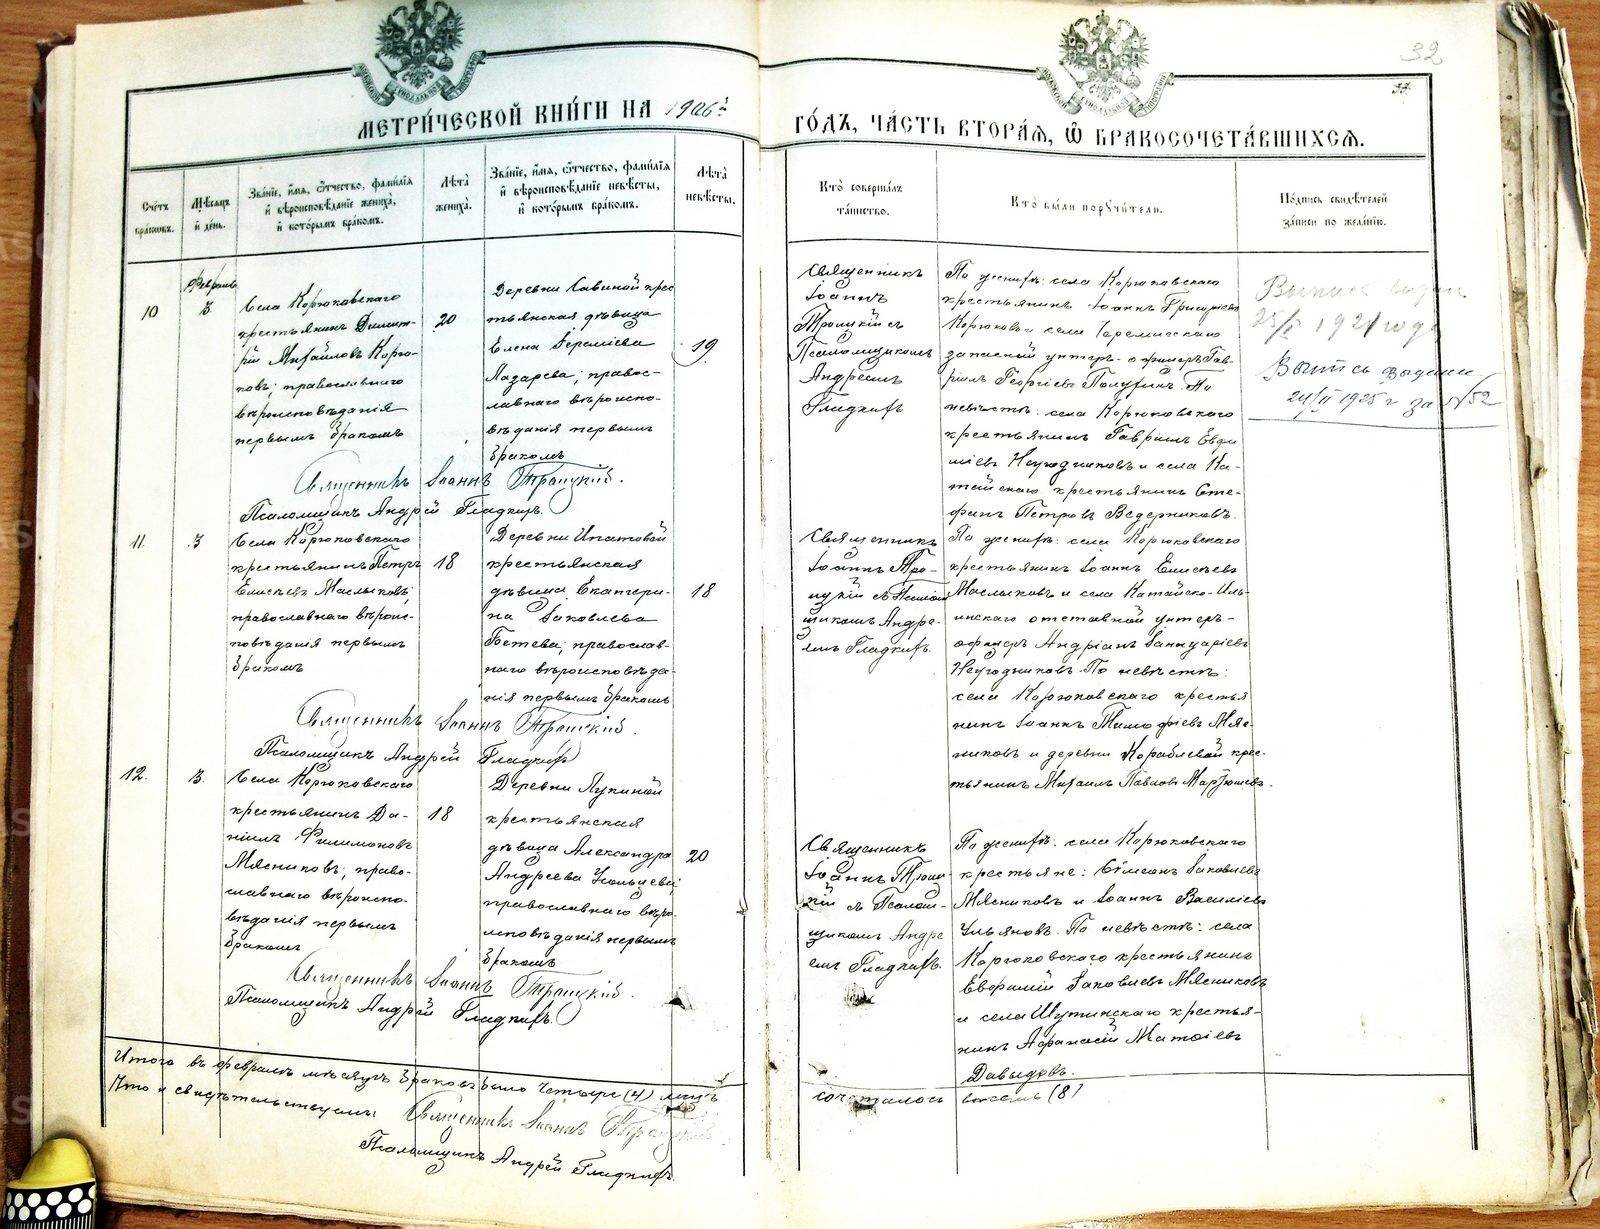 32
37.
МОСКОВСКОЙ СИНОДАЛЬНОЙ ТИПОГРАФІИ
МЕТРИ́ЧЕСКОЙ КНИ́ГИ НА 1906й
ГО́ДЪ, ЧА́СТЬ ВТОРА́Я, Ѽ БРАКОСОЧЕТА́ВШИХСЯ.
Сче́тъ
бра́ковъ.
Мѣ́сяцъ
и҆ де́нь.
Зва́нїе, и҆́мя, ѻ҆́тчество, фами́лїя
и҆ вѣроисповѣ́данїе жениха̀,
и҆ кото́рымъ бра́комъ.
Лѣ́та
жениха̀.
Зва́нїе, и҆́мя, ѻ҆́тчество, фами́лїя
и҆ вѣроисповѣ́данїе невѣ́сты,
и҆ кото́рымъ бра́комъ.
Лѣ́та
невѣ́сты.
Кто̀ соверша́лъ
та́инство.
Кто̀ бы́ли порꙋчи́тели.
По́дпись свидѣ́телей
за́писи по жела́нїю.
Февраль
10
3.
Села Корюковскаго
крестьянинъ Димит-
рій Михайловъ Корю-
ковъ; православнаго
вѣроисповѣданія
первымъ бракомъ
20
Деревни Савиной крес
тьянская дѣвица
Елена Іереміева
Лазарева; право-
славнаго вѣроиспо-
вѣданія первымъ
бракомъ
19
Священникъ
Іоаннъ
Троицкій съ
Псаломщикомъ
Андреемъ
Гладкихъ
По женихѣ: села Корюковскаго
крестьянинъ Іоаннъ Григорьевъ
Корюковъ и села Черемисскаго
запасный унтеръ-офицеръ Гав-
ріилъ Георгіевъ Полухинъ. По
невѣстѣ: села Корюковскаго
крестьянинъ Гавріилъ Евфи
міевъ Неугодниковъ и села Ка-
тайскаго крестьянинъ Сте-
фанъ Петровъ Ведерниковъ.
Выпись выдана
25/II 1921 года
Выпись выдана
24/II 1925 г за №52
Священникъ Іоаннъ Троицкій.
Псаломщикъ Андрей Гладкихъ.
11.
3
Села Корюковскаго
крестьянинъ Петръ
Елисѣевъ Маслыковъ,
православнаго вѣроис-
повѣданія первымъ
бракомъ
18
Деревни Ипатовой
крестьянская
дѣвица Екатери-
на Іаковлева
Бетева; православ-
наго вѣроисповѣда-
нія первымъ бракомъ
18
Священникъ
Іоаннъ Тро-
ицкій съ Псалом
щикомъ Андре-
емъ Гладкихъ.
По женихѣ: села Корюковскаго
крестьянинъ Іоаннъ Елисѣевъ
Маслыковъ и села Катайско-Иль-
инскаго отставной унтеръ-
офицеръ Андріанъ Іаннуаріевъ
Неугодниковъ. По невѣстѣ:
села Корюковскаго крестья
нинъ Іоаннъ Тимофіевъ Мяс-
никовъ и деревни Кораблевой крес-
тьянинъ Михаилъ Павловъ Мартюшевъ.
Священникъ Іоаннъ Троицкій.
Псаломщикъ Андрей Гладкихъ
12.
3.
Села Корюковскаго
крестьянинъ Да-
ніилъ Филимоновъ
Мясниковъ, право-
славнаго вѣроиспо-
вѣданія первымъ
бракомъ
18
Деревни Лукиной
крестьянская
дѣвица Александра
Андреева Усольцева;
православнаго вѣро-
исповѣданія первымъ
бракомъ
20
Священникъ
Іоаннъ Троиц
кій съ Псалом-
щикомъ Андре
емъ Гладкихъ.
По женихѣ: села Корюковскаго
крестьяне: Сѵмеонъ Іаковлевъ
Мясниковъ и Іоаннъ Василіевъ
Ульяновъ. По невѣстѣ: села
Корюковскаго крестьянинъ
Евфимій Іаковлевъ Мясниковъ
и села Шутинскаго крестья-
нинъ Афанасій Матѳіевъ
Давыдовъ.
Священникъ Іоаннъ Троицкій.
Псаломщикъ Андрей Гладкихъ.
Итого въ февралѣ мѣсяцѣ браковъ было четыре (4) лицъ
сочеталось восемь (8)
Что и свидѣтельствуемъ: Священникъ Іоаннъ Троицкій
Псаломщикъ Андрей Гладкихъ.